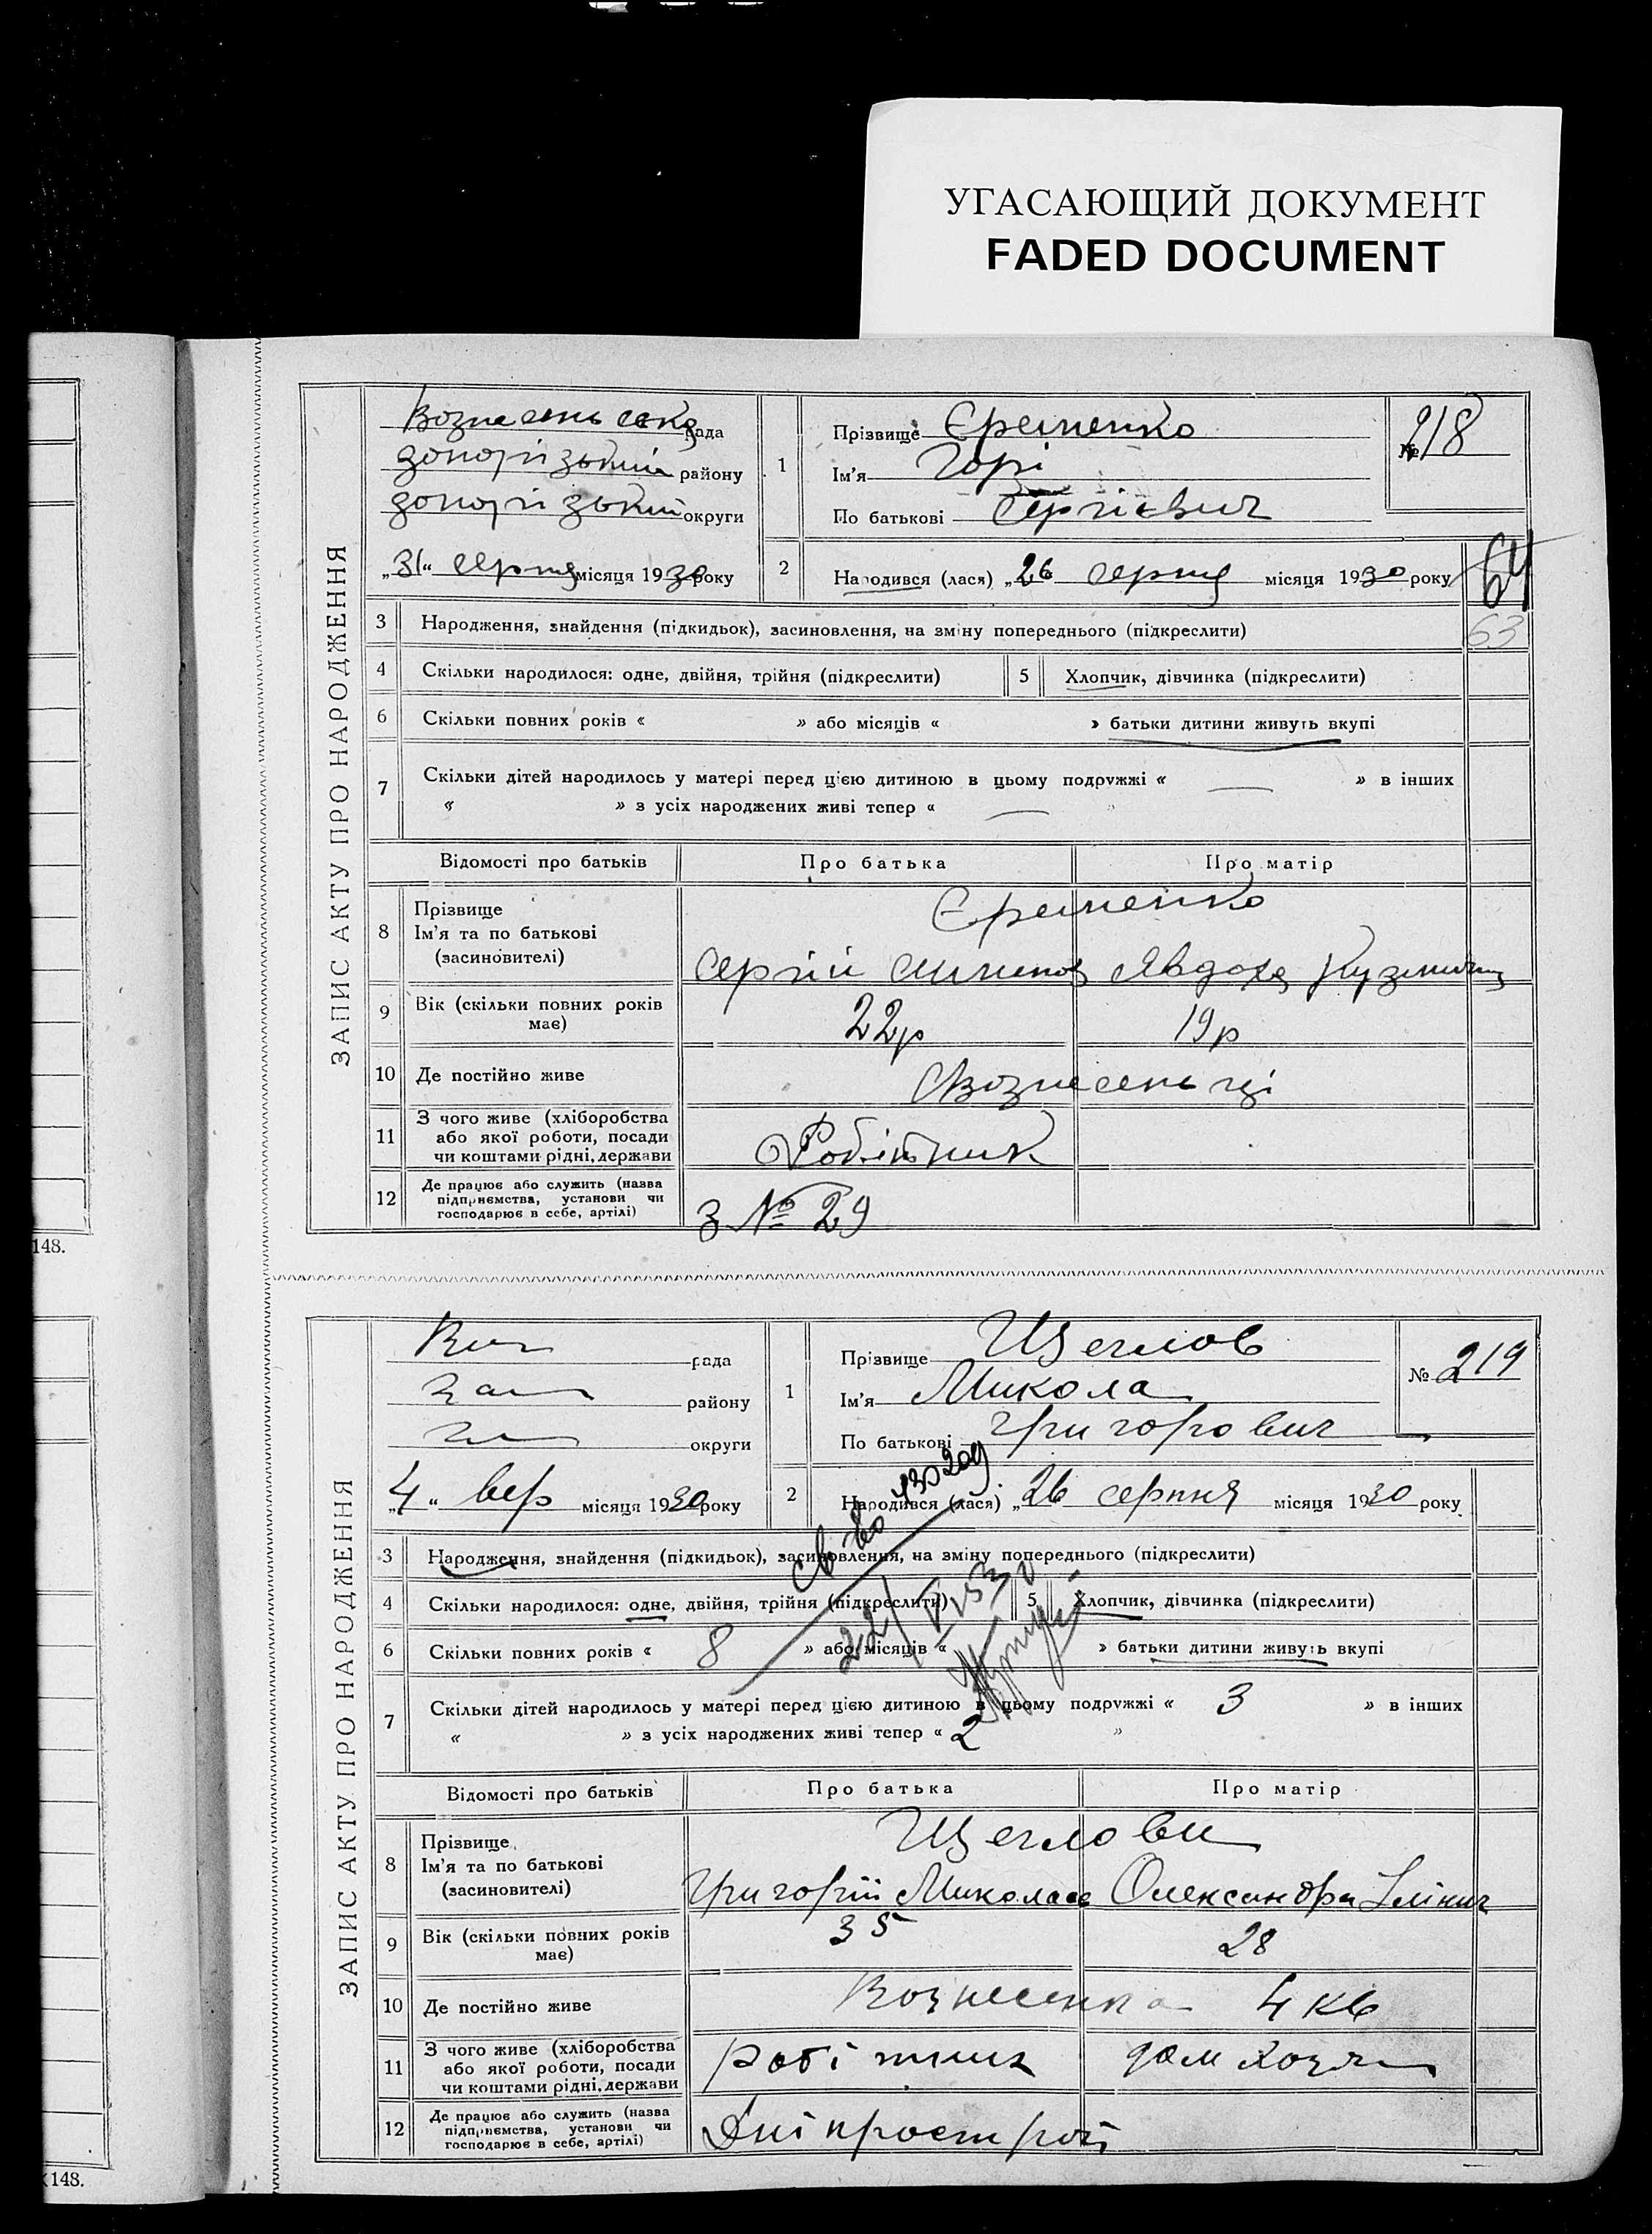 УГАСАЮЩИЙ ДОКУМЕНТ
FADED DOCUMENT
ЗАПИС АКТУ ПРО НАРОДЖЕННЯ
рада
району
округи
„31“ серпня місяця 1930 року
1
Прізвище Єременко
Ім'я
По батькові Сергієвич
№ 218
2
Народився (лася) „26 серпня місяця 1930 року
64
63
3 Народження, знайдення (підкидьок), засиновлення, на зміну попереднього (підкреслити)
4 Скільки народилося: одне, двійня, трійня (підкреслити) 5 Хлопчик, дівчинка (підкреслити)
6 Скільки повних років « » або місяців « » батьки дитини живуть вкупі
7 Скільки дітей народилось у матері перед цією дитиною в цьому подружжі « — » в інших
« » з усіх народжених живі тепер « — »
Відомості про батьків Про батька Про матір
8 Прізвище
Ім'я та по батькові
(засиновителі)
Єременко
Сергій Явдоха
9 Вік (скільки повних років
має)
22р 19р
10 Де постійно живе Вознесенці
11 З чого живе (хліборобства
або якої роботи, посади
чи коштами рідні, держави
Робітник
12 Де працює або служить (назва
підприємства, установи чи
господарює в себе, артілі)
З № 29
148.
ЗАПИС АКТУ ПРО НАРОДЖЕННЯ
рада
району
округи
„4“ вер місяця 1930 року
1
Прізвище Щеглов
Ім'я Микола
По батькові Григорович
№ 219
2
Народився (лася) „26 серпня місяця 1930 року
3 Народження, знайдення (підкидьок), засиновлення, на зміну попереднього (підкреслити)
4 Скільки народилося: одне, двійня, трійня (підкреслити) 5 Хлопчик, дівчинка (підкреслити)
6 Скільки повних років « 8 » або місяців « » батьки дитини живуть вкупі
7 Скільки дітей народилось у матері перед цією дитиною в цьому подружжі « 3 » в інших
« » з усіх народжених живі тепер « 2 »
Відомості про батьків Про батька Про матір
8 Прізвище
Ім'я та по батькові
(засиновителі)
Щеглови
Григорій Миколаев Олександра
9 Вік (скільки повних років
має)
35 28
10 Де постійно живе Вознесенка 4 кв
11 З чого живе (хліборобства
або якої роботи, посади
чи коштами рідні, держави
робітник дом хозя
12 Де працює або служить (назва
підприємства, установи чи
господарює в себе, артілі)
Дніпрострой
148.